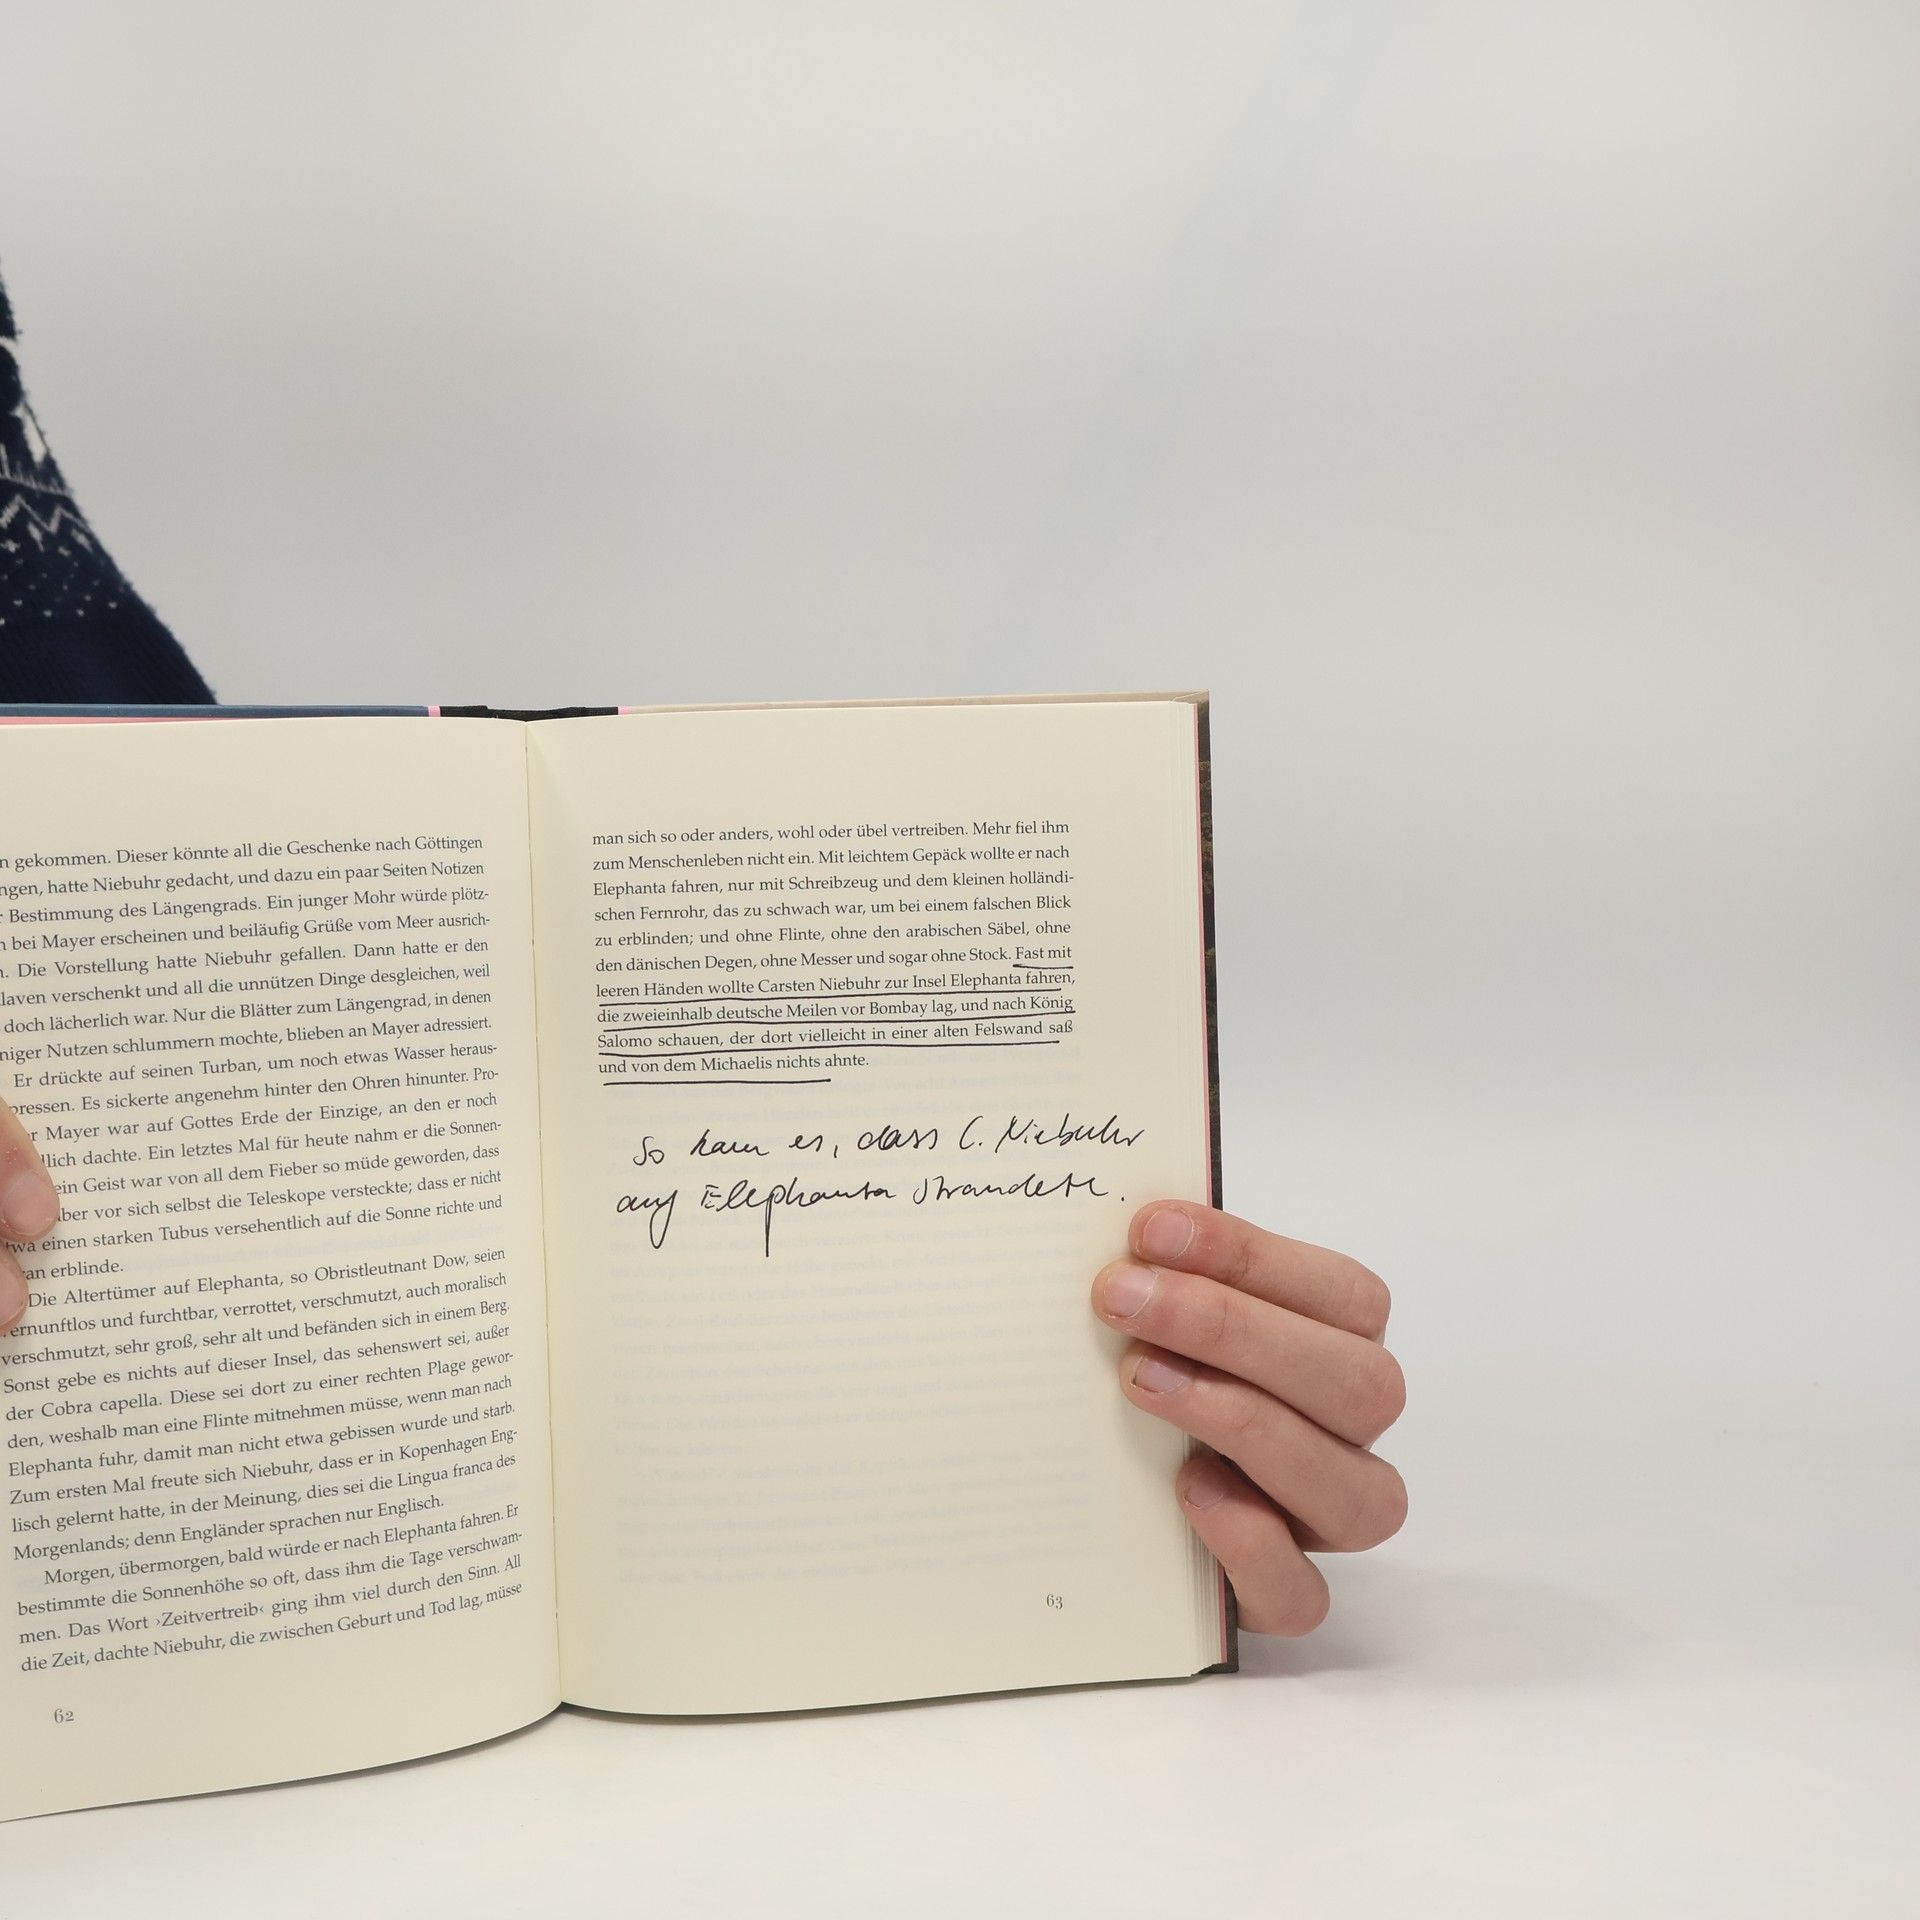 n gekommen. Dieser könnte all die Geschenke nach Göttingen
ngen, hatte Niebuhr gedacht, und dazu ein paar Seiten Notizen
r Bestimmung des Längengrads. Ein junger Mohr würde plötz-
n bei Mayer erscheinen und beiläufig Grüße vom Meer ausrich-
n. Die Vorstellung hatte Niebuhr gefallen. Dann hatte er den
laven verschenkt und all die unnützen Dinge desgleichen, weil
doch lächerlich war. Nur die Blätter zum Längengrad, in denen
niger Nutzen schlummern mochte, blieben an Mayer adressiert.
Er drückte auf seinen Turban, um noch etwas Wasser heraus-
pressen. Es sickerte angenehm hinter den Ohren hinunter. Pro-
r Mayer war auf Gottes Erde der Einzige, an den er noch
llich dachte. Ein letztes Mal für heute nahm er die Sonnen-
ein Geist war von all dem Fieber so müde geworden, dass
ber vor sich selbst die Teleskope versteckte; dass er nicht
twa einen starken Tubus versehentlich auf die Sonne richte und
ran erblinde.
Die Altertümer auf Elephanta, so Obristleutnant Dow, seien
vernunftlos und furchtbar, verrottet, verschmutzt, auch moralisch
verschmutzt, sehr groß, sehr alt und befänden sich in einem Berg.
Sonst gebe es nichts auf dieser Insel, das sehenswert sei, außer
der Cobra capella. Diese sei dort zu einer rechten Plage gewor-
den, weshalb man eine Flinte mitnehmen müsse, wenn man nach
Elephanta fuhr, damit man nicht etwa gebissen wurde und starb.
Zum ersten Mal freute sich Niebuhr, dass er in Kopenhagen Eng-
lisch gelernt hatte, in der Meinung, dies sei die Lingua franca des
Morgenlands; denn Engländer sprachen nur Englisch.
Morgen, übermorgen, bald würde er nach Elephanta fahren. Er
bestimmte die Sonnenhöhe so oft, dass ihm die Tage verschwam-
men. Das Wort ›Zeitvertreib‹ ging ihm viel durch den Sinn. All
die Zeit, dachte Niebuhr, die zwischen Geburt und Tod lag, müsse
62
man sich so oder anders, wohl oder übel vertreiben. Mehr fiel ihm
zum Menschenleben nicht ein. Mit leichtem Gepäck wollte er nach
Elephanta fahren, nur mit Schreibzeug und dem kleinen holländi-
schen Fernrohr, das zu schwach war, um bei einem falschen Blick
zu erblinden; und ohne Flinte, ohne den arabischen Säbel, ohne
den dänischen Degen, ohne Messer und sogar ohne Stock. Fast mit
leeren Händen wollte Carsten Niebuhr zur Insel Elephanta fahren,
die zweieinhalb deutsche Meilen vor Bombay lag, und nach König
Salomo schauen, der dort vielleicht in einer alten Felswand saß
und von dem Michaelis nichts ahnte.
So kam es, dass C. Niebuhr
auf Elephanta strandete.
63